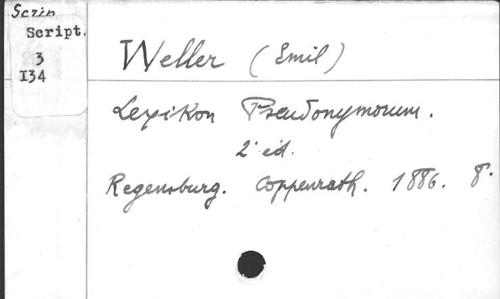 Scrin
Script.
3
I34
Weller (Emil)
Lexikon Pseudonymorum.
2ᵉ éd.
Regensburg. Coppenrath. 1886. 8°.